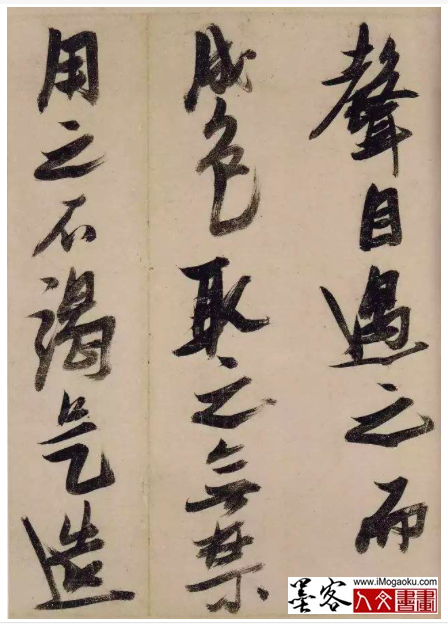 聲目遇之而
成色取之無禁
用之不竭是造
www.iMogaoku.com
墨客
人文書畫